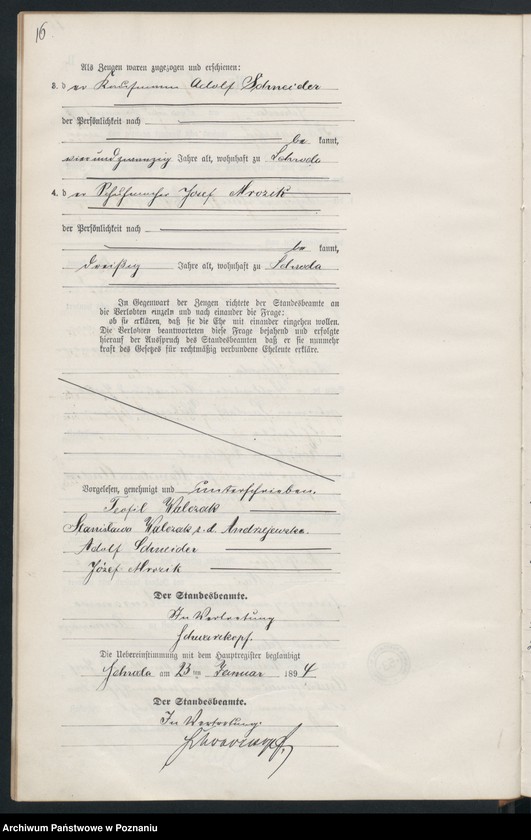 16
Als Zeugen waren zugezogen und erschienen:
3. der Kaufmann Adolf Schneider
der Persönlichkeit nach
be kannt,
vierundzwanzig Jahre alt, wohnhaft zu Schroda
4. der Schuhmacher Josef Mrozik
der Persönlichkeit nach
be kannt,
dreißig Jahre alt, wohnhaft zu Schroda
In Gegenwart der Zeugen richtete der Standesbeamte an
die Verlobten einzeln und nach einander die Frage:
ob sie erklären, daß sie die Ehe mit einander eingehen wollen.
Die Verlobten beantworteten diese Frage bejahend und erfolgte
hierauf der Ausspruch des Standesbeamten, daß er sie nunmehr
kraft des Gesetzes für rechtmäßig verbundene Eheleute erkläre.
Vorgelesen, genehmigt und unterschrieben.
Teofil Walczak
Stanisława Walczak z. d. Andrzejewska.
Adolf Schneider
Józef Mrozik
Der Standesbeamte.
In Vertretung
Schwarzkopf.
Die Uebereinstimmung mit dem Hauptregister beglaubigt
Schroda am 23 ten Januar 1894
Der Standesbeamte.
In Vertretung.
Schwarzkopf.
Archiwum Państwowe w Poznaniu